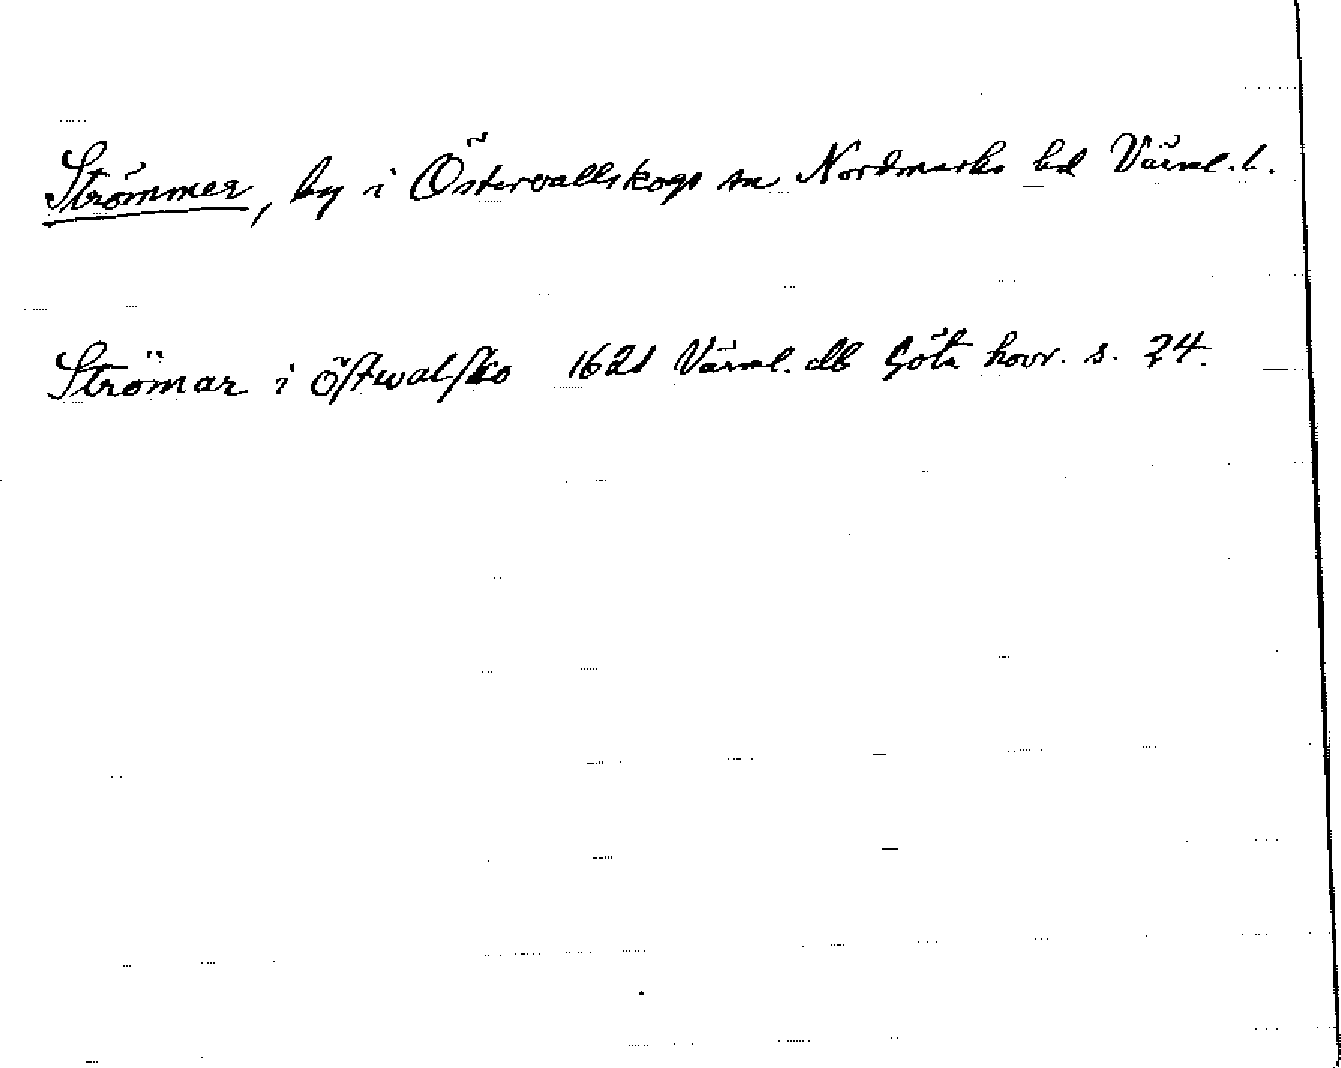 Strömmer, by i Östervallskogs sn Nordmarks hd Värml. l.
Strömar i östwalsko 1621 Värml. db Göta hovr. s. 24.